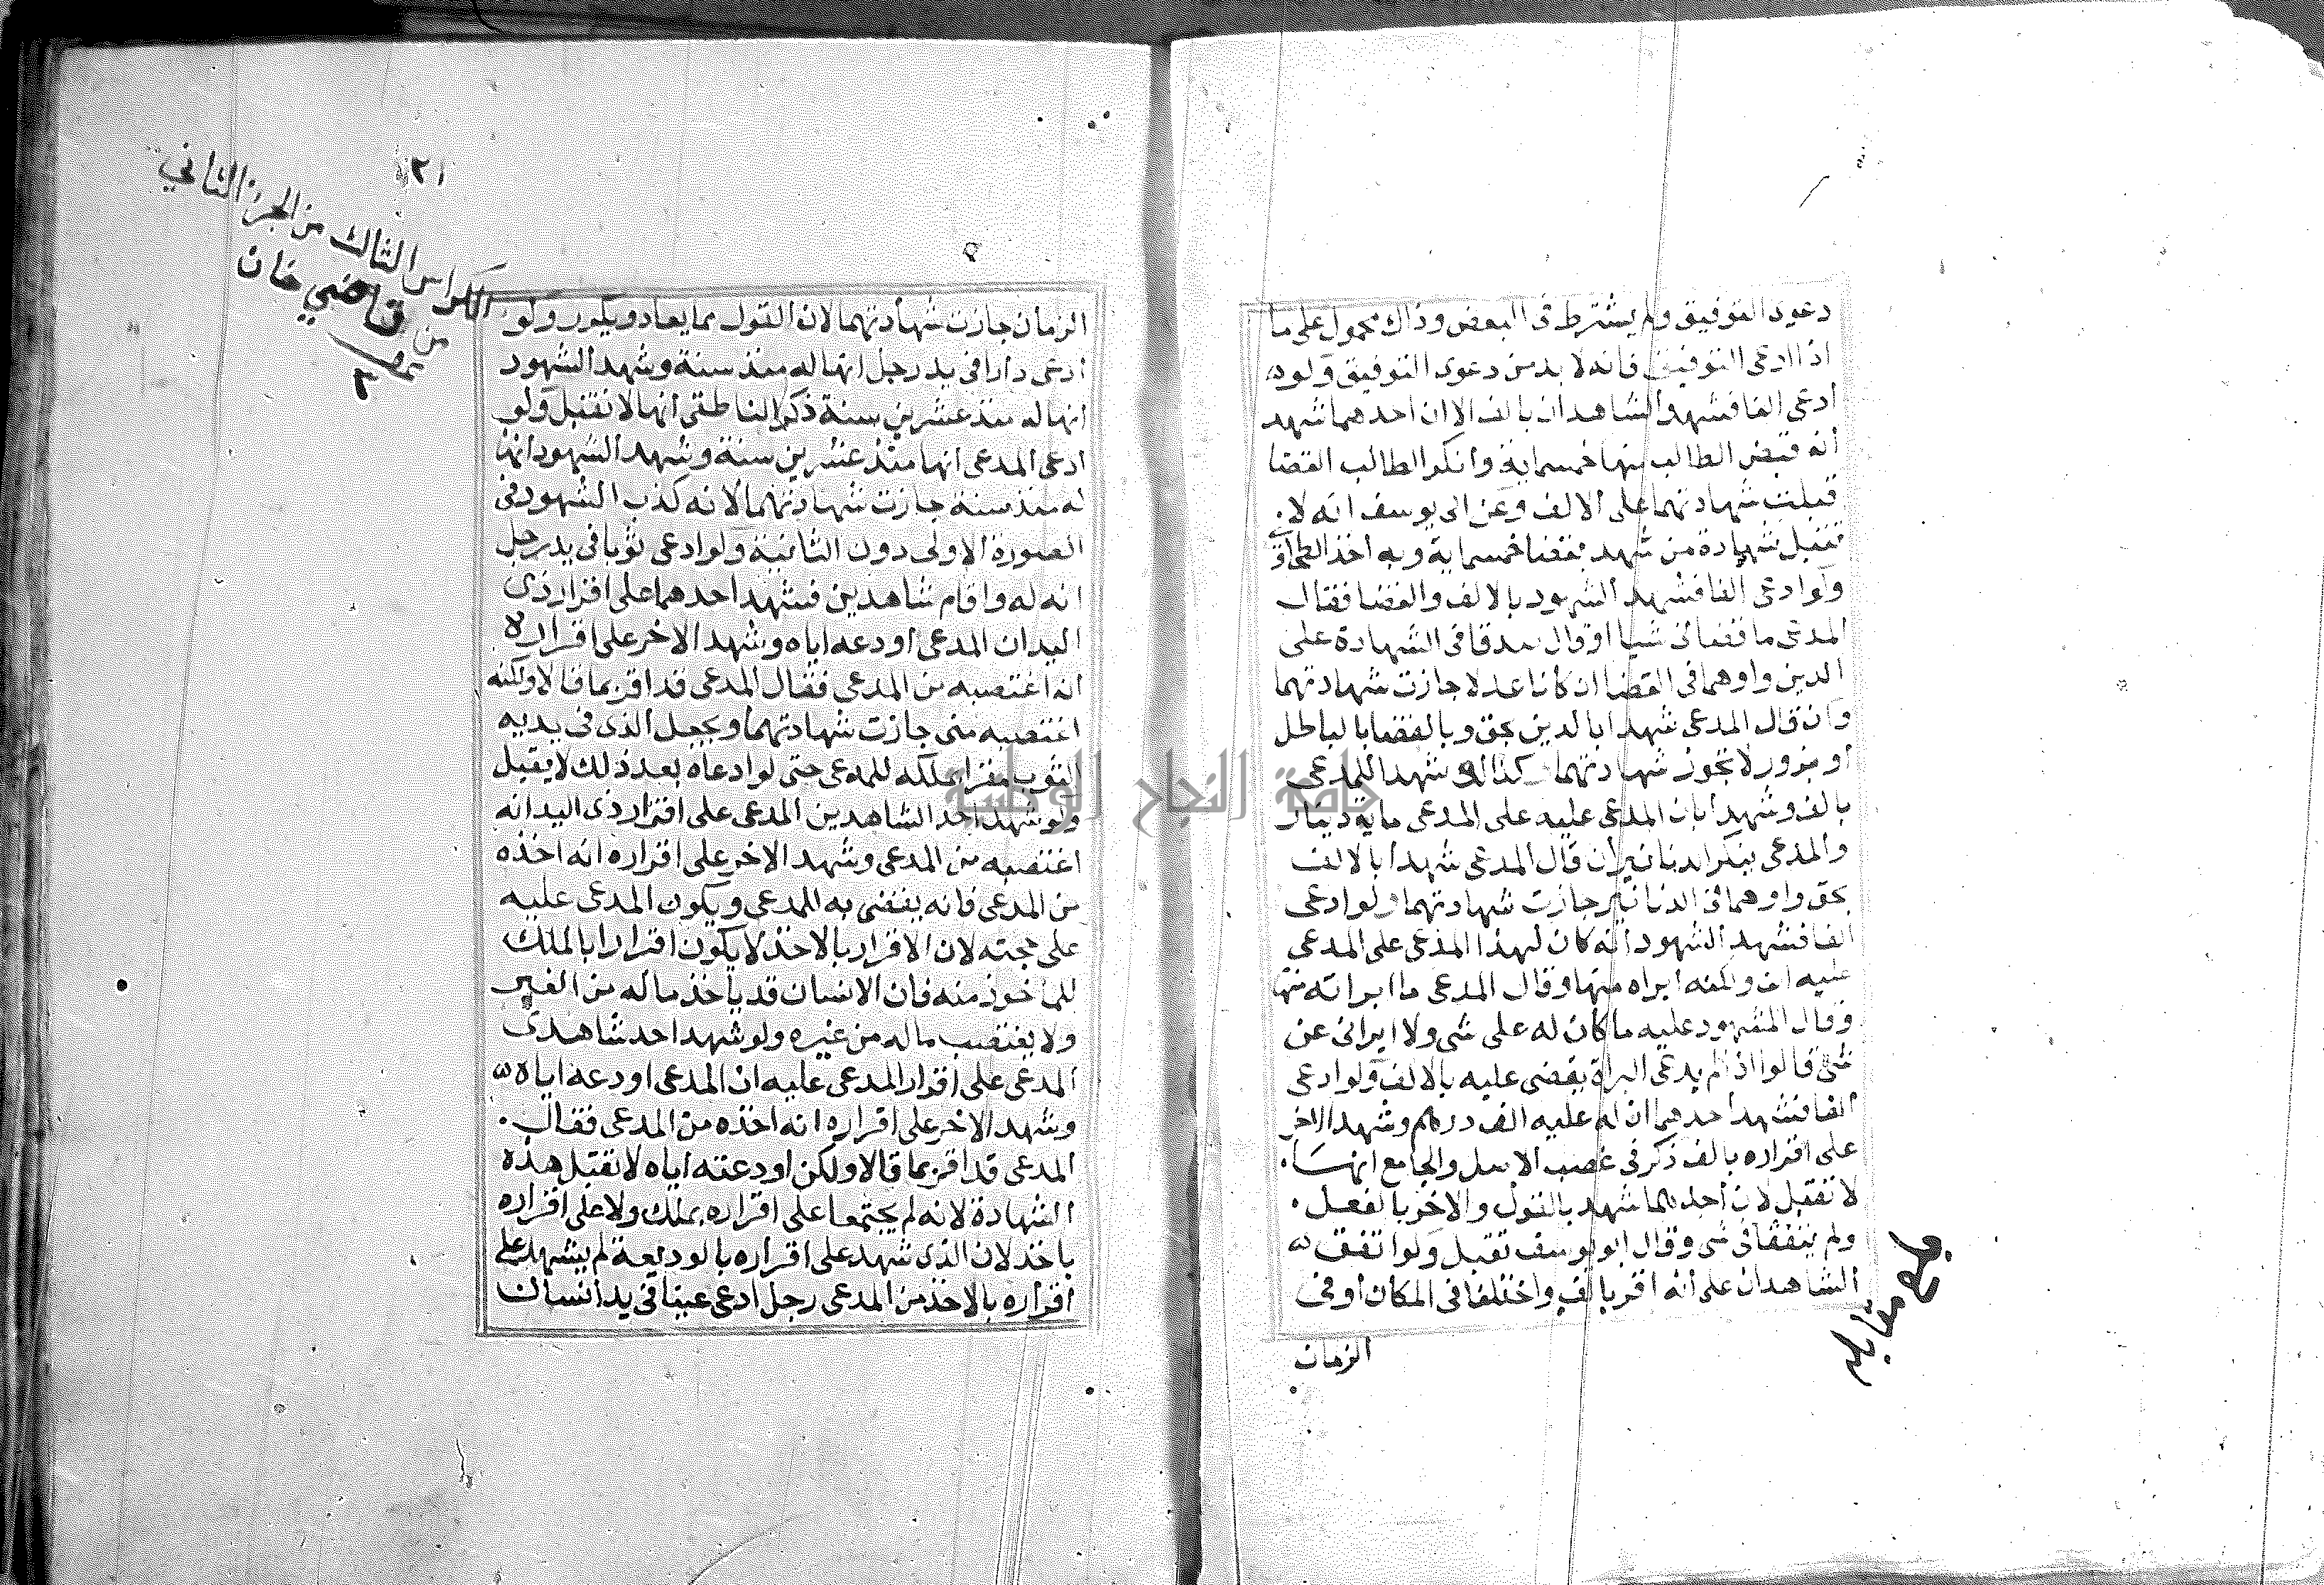 دعوى التوفيق ولم يشترط فى البعض وذاك محمول على ما
اذا ادعى التوفيق فانه لا بد من دعوى التوفيق ولو
ادعى الفا فشهد الشاهدان بالف الا ان احدهما شهد
انه قبض الطالب منها خمسماية وانكر الطالب القضا
قبلت شهادتهما على الالف وعن ابى يوسف انه لا
تقبل شهادة من شهد بقضا خمسماية وبه اخذ الطحاوى
ولو ادعى الفا فشهد الشهود بالالف والقضا فقال
المدعى ما قضانى شيا او قال صدقا فى الشهادة على
الدين واوهما فى القضا ان كانا عدلا جازت شهادتهما
وان قال المدعى شهدا بالدين بحق وبالقضا بالباطل
او بزور لا تجوز شهادتهما كذا لو شهدا للمدعى
بالف وشهدا بان المدعى عليه على المدعى ماية دينار
والمدعى ينكر الدنانير ان قال المدعى شهدا بالالف
بحق واوهما فى الدنانير جازت شهادتهما ولو ادعى
الفا فشهد الشهود انه كان لهذا المدعى على المدعى
عليه الف ولكنه ابراه منها وقال المدعى ما ابراته منها
وقال المشهود عليه ما كان له على شى ولا ابرانى عن
شى قالوا اذا لم يدعى البراة يقضى عليه بالالف ولو ادعى
الفا فشهد احدهما ان له عليه الف درهم وشهد الاخر
على اقراره بالف ذكر فى غصب الاصل والجامع انهسا
لا تقبل لان احدهما شهد بالقول والاخر بالفعل
ولم يتفقا فى شى وقال ابو يوسف تقبل ولو اتفق
الشاهدان على انه اقر بالف واختلفا فى المكان او فى
الزمان
مقابله
٢١
الكراس الثالث من الجزء الثانى
من قاضي خان
الزمان جازت شهادتهما لان القول مما يعاد ويكرر ولو
ادعى دارا فى يد رجل انها له منذ سنة وشهد الشهود
انها له منذ عشرين سنة ذكر الناطقى انها لا تقبل ولو
ادعى المدعى انها منذ عشرين سنة وشهد الشهود انها
له منذ سنة جازت شهادتهما لانه كذب الشهود فى
الصورة الاولى دون الثانية ولو ادعى ثوبا فى يد رجل
انه له واقام شاهدين فشهد احدهما على اقرار ذى
اليد ان المدعى اودعه اياه وشهد الاخر على اقراره
انه اغتصبه من المدعى فقال المدعى قد اقر بما قالا ولكنه
اغتصبه منى جازت شهادتهما ويجعل الذى فى يديه
الثوب مقرا بملكه للمدعى حتى لو ادعاه بعد ذلك لا يقبل
ولو شهد احد الشاهدين المدعى على اقرار ذى اليد انه
اغتصبه من المدعى وشهد الاخر على اقراره انه اخذه
من المدعى فانه يقضى به للمدعى ويكون المدعى عليه
على حجته لان الاقرار بالاخذ لا يكون اقرارا بالملك
للماخوذ منه فان الانسان قد ياخذ ماله من الغير
ولا يغتصب ماله من غيره ولو شهد احد شاهدى
المدعى على اقرار المدعى عليه ان المدعى اودعه اياه
وشهد الاخر على اقراره انه اخذه من المدعى فقال
المدعى قد اقر بما قالا ولكن اودعته اياه لا تقبل هذه
الشهادة لانه لم يجتمعا على اقراره بملك ولا على اقراره
باخذ لان الذى شهد على اقراره بالوديعة لم يشهد على
اقراره بالاخذ من المدعى رجل ادعى عينا فى يد انسان
جامعة النجاح الوطنية